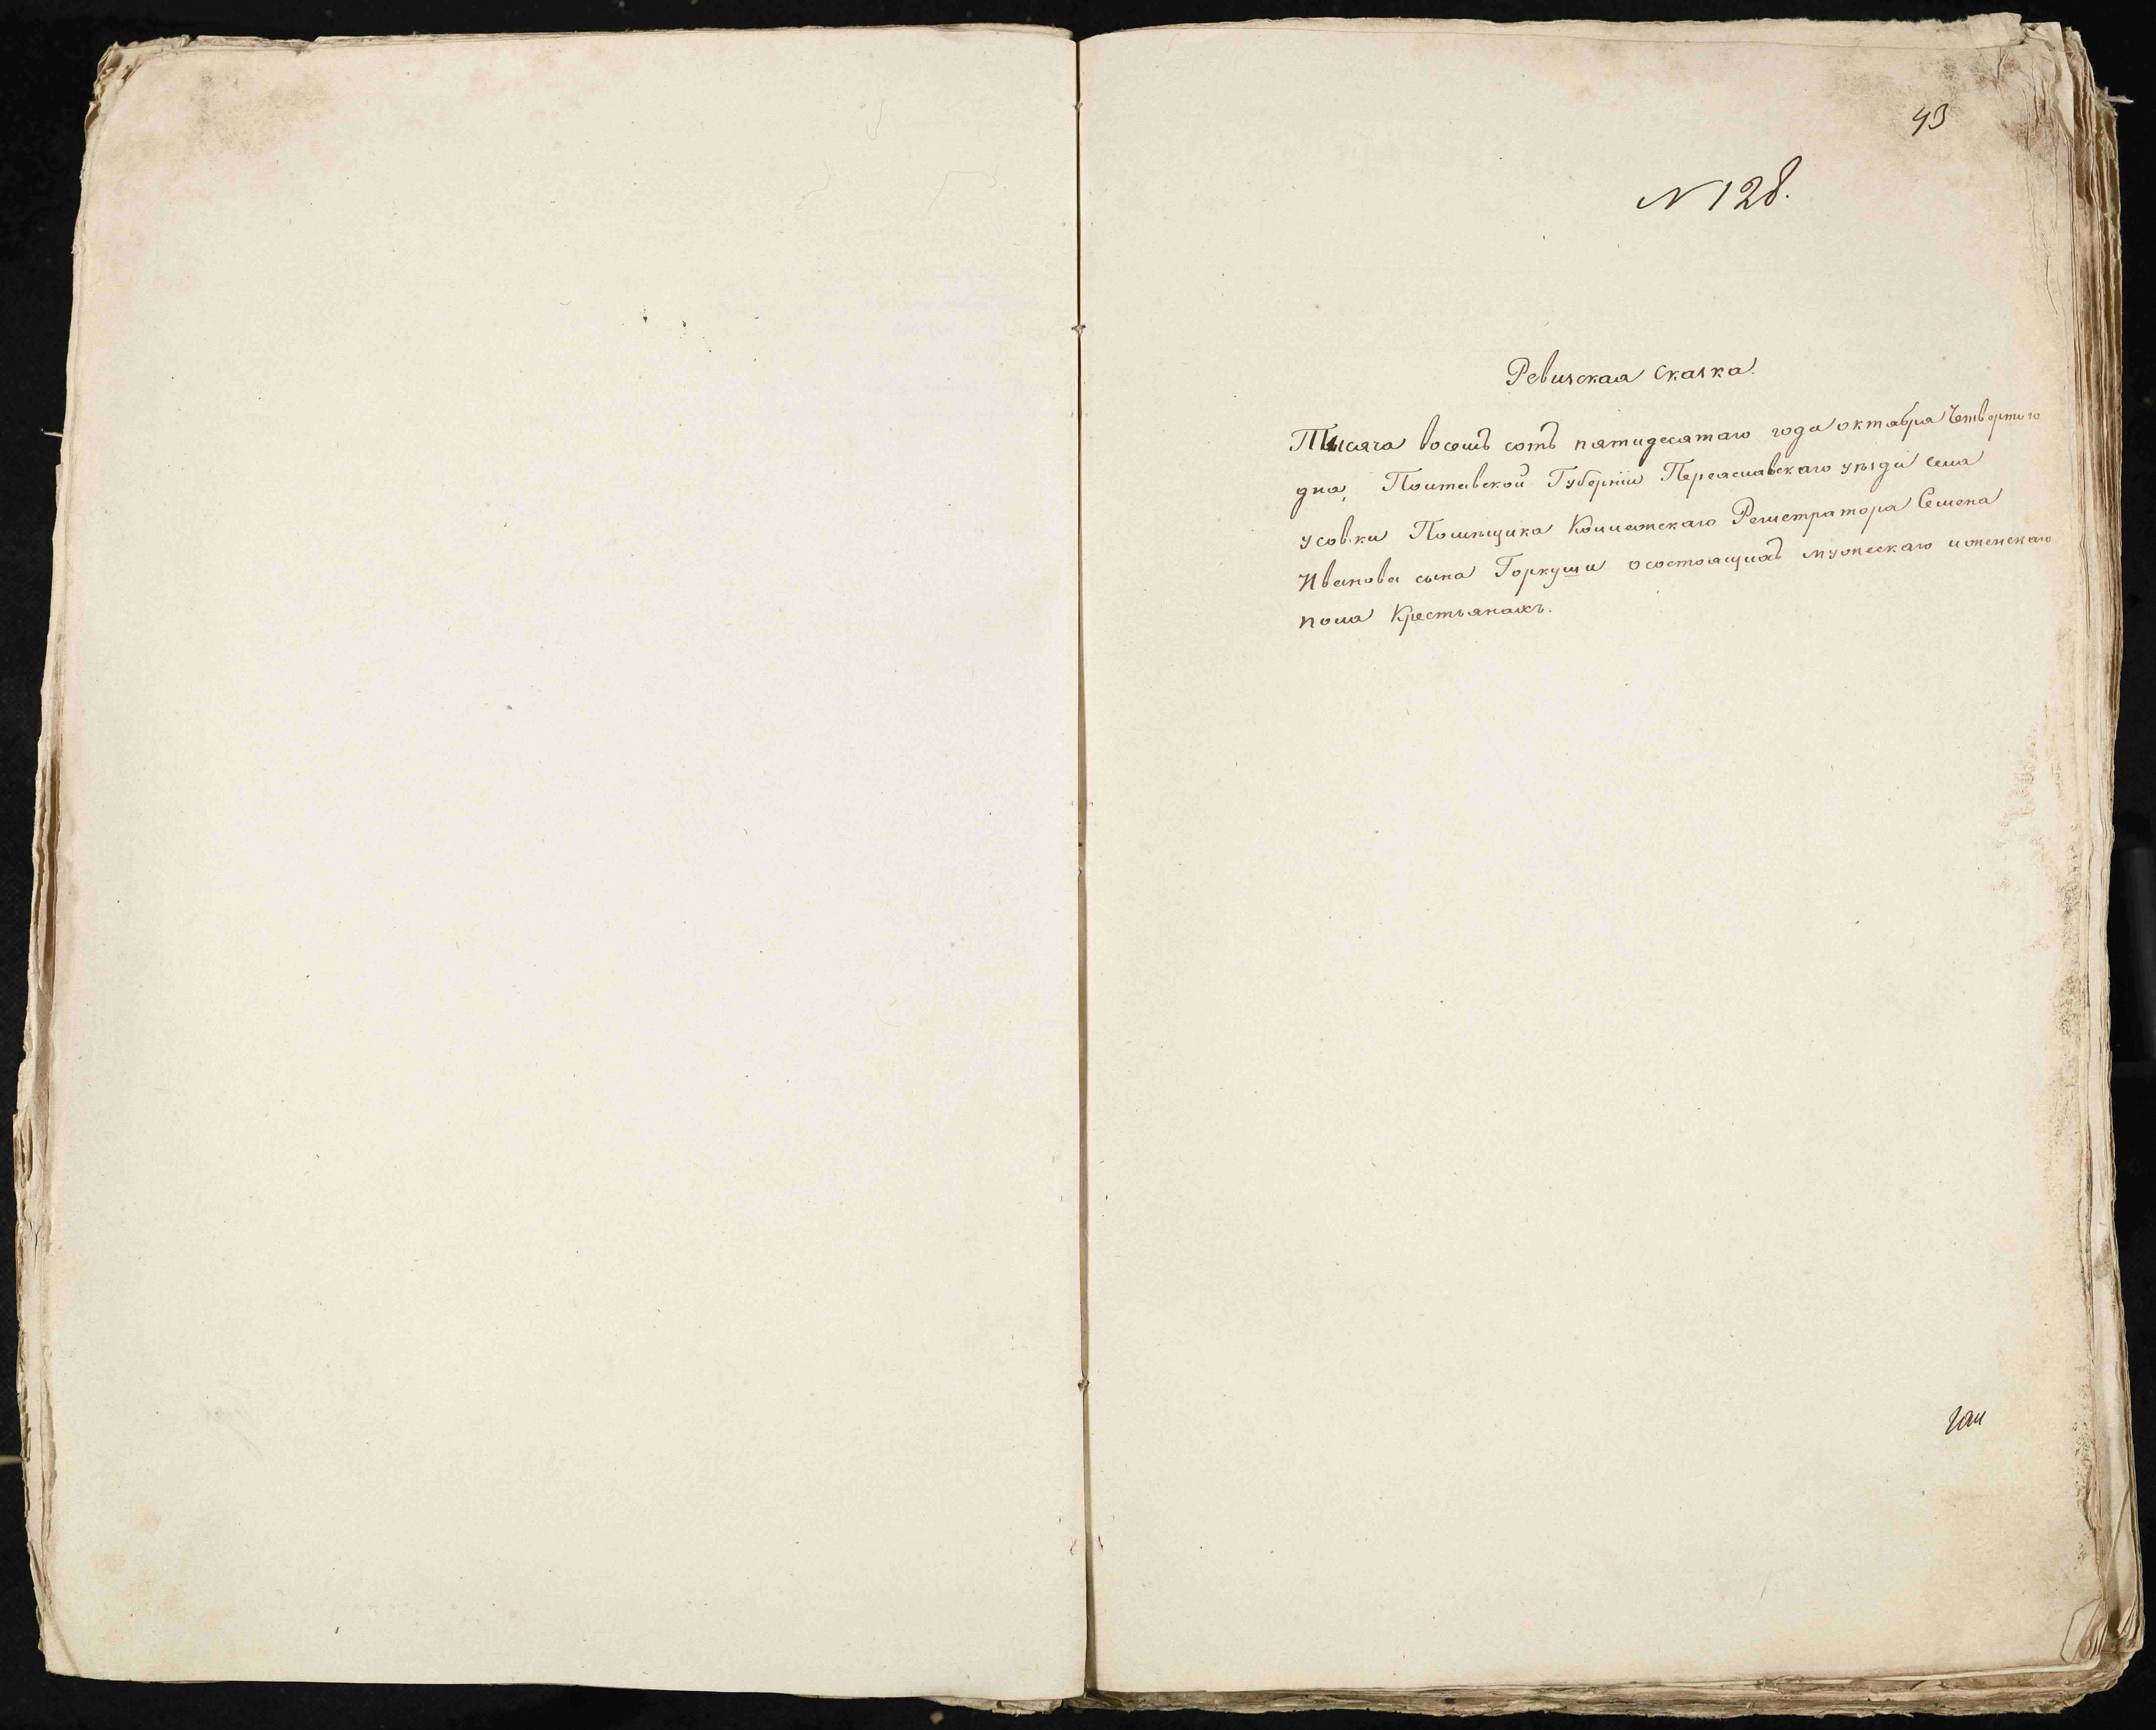 43
N 128.
Ревизская Сказка.
Тысяча восемь сотъ пятидесятаго года октября Четвертого
дня, Полтавской Губерніи Переяславскаго уѣзда Села
усовки Помѣщика Коллежскаго Регистратора Семена
Иванова сына Горкуши о состоящихъ мужескаго и женскаго
пола Крестьянахъ.